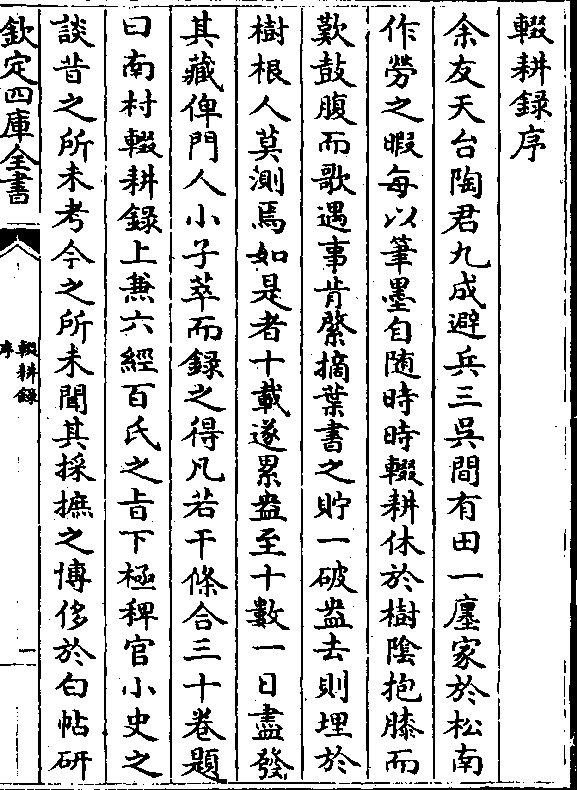 輟耕録序
余友天台陶君九成避兵三吳間有田一廛家於松南
作勞之暇每以筆墨自随時時輟耕休於樹陰抱膝而
歎鼓腹而歌遇事肯綮摘葉書之貯一破盎去則埋於
樹根人莫測焉如是者十載遂累盎至十數一日盡發
其藏俾門人小子萃而録之得凡若干條合三十卷題
曰南村輟耕録上兼六經百氏之旨下極稗官小史之
談昔之所未考今之所未聞其採摭之博侈於白帖研
欽定四庫全書
輟耕録
序
一